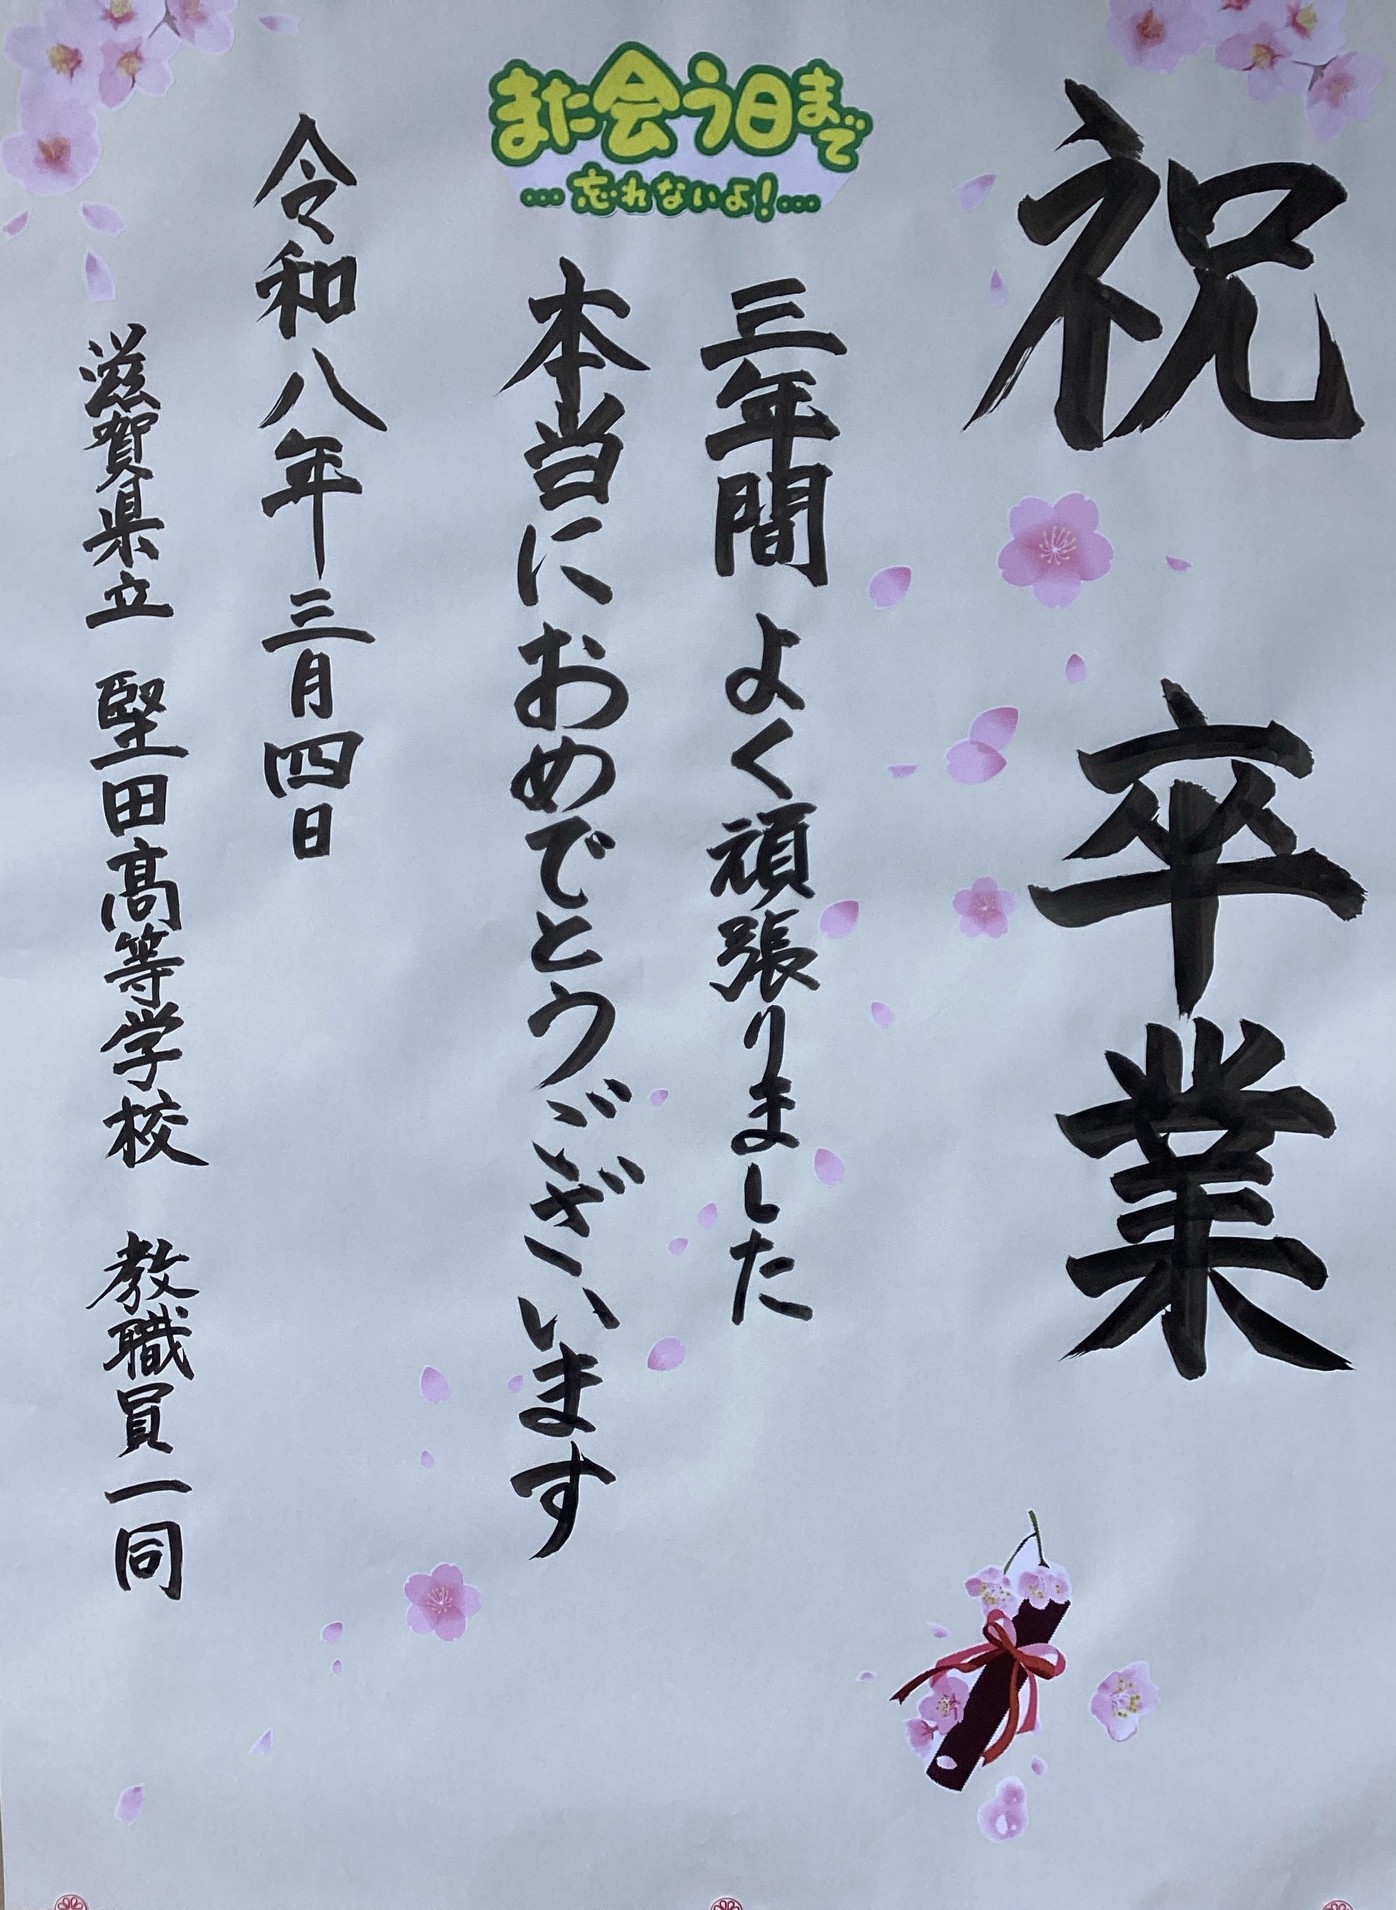 祝 卒業
また会う日まで
…忘れないよ!…
三年間 よく頑張りました
本当におめでとうございます
令和八年三月四日
滋賀県立 堅田高等学校 教職員一同